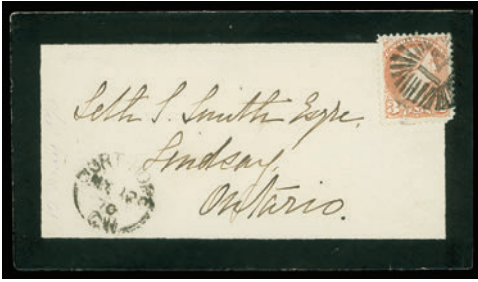 Seth S. Smith Esqre.
Lindsay,
Ontario.
PORT HOPE